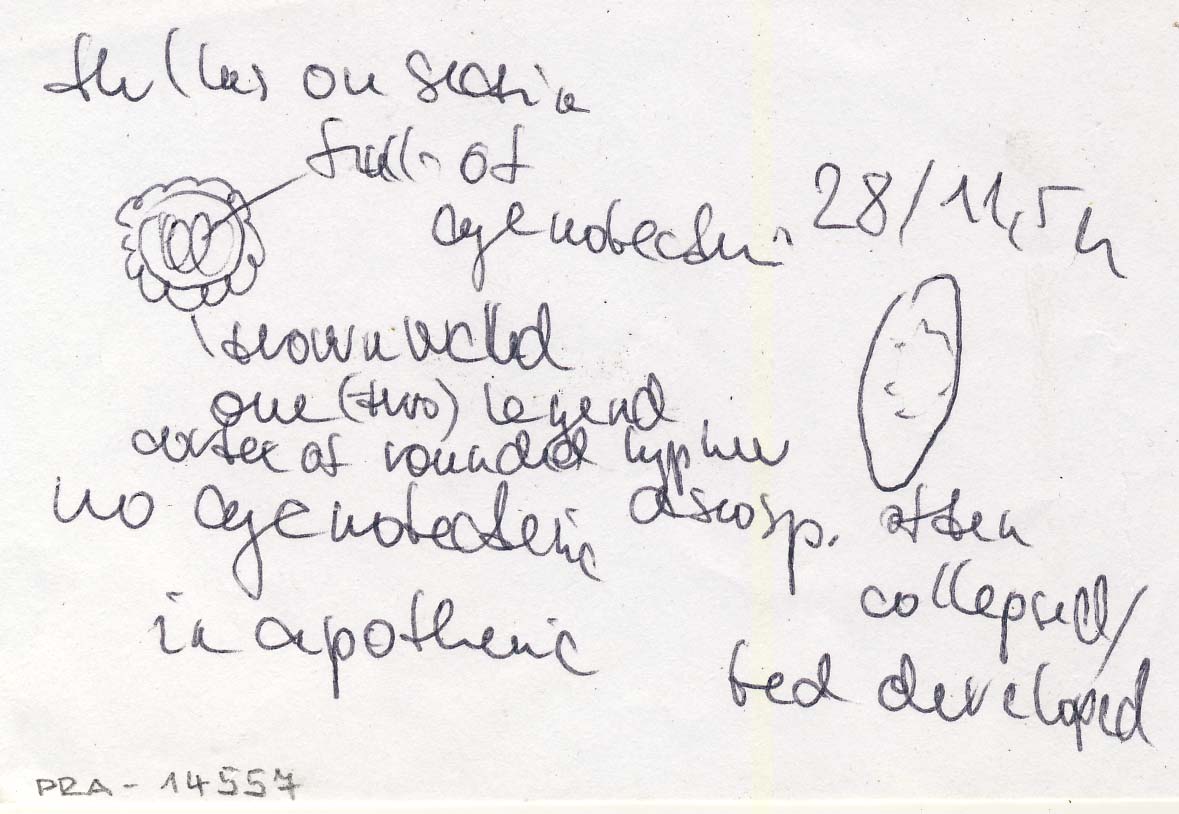 thallus on section
full of
cyanobacteria
28/11,5 h
brown walled
one (two) layered
cortex of rounded hyphae
no cyanobacteria
in apothecia
ascosp. often
collapsed/
bad developed
PRA-14557